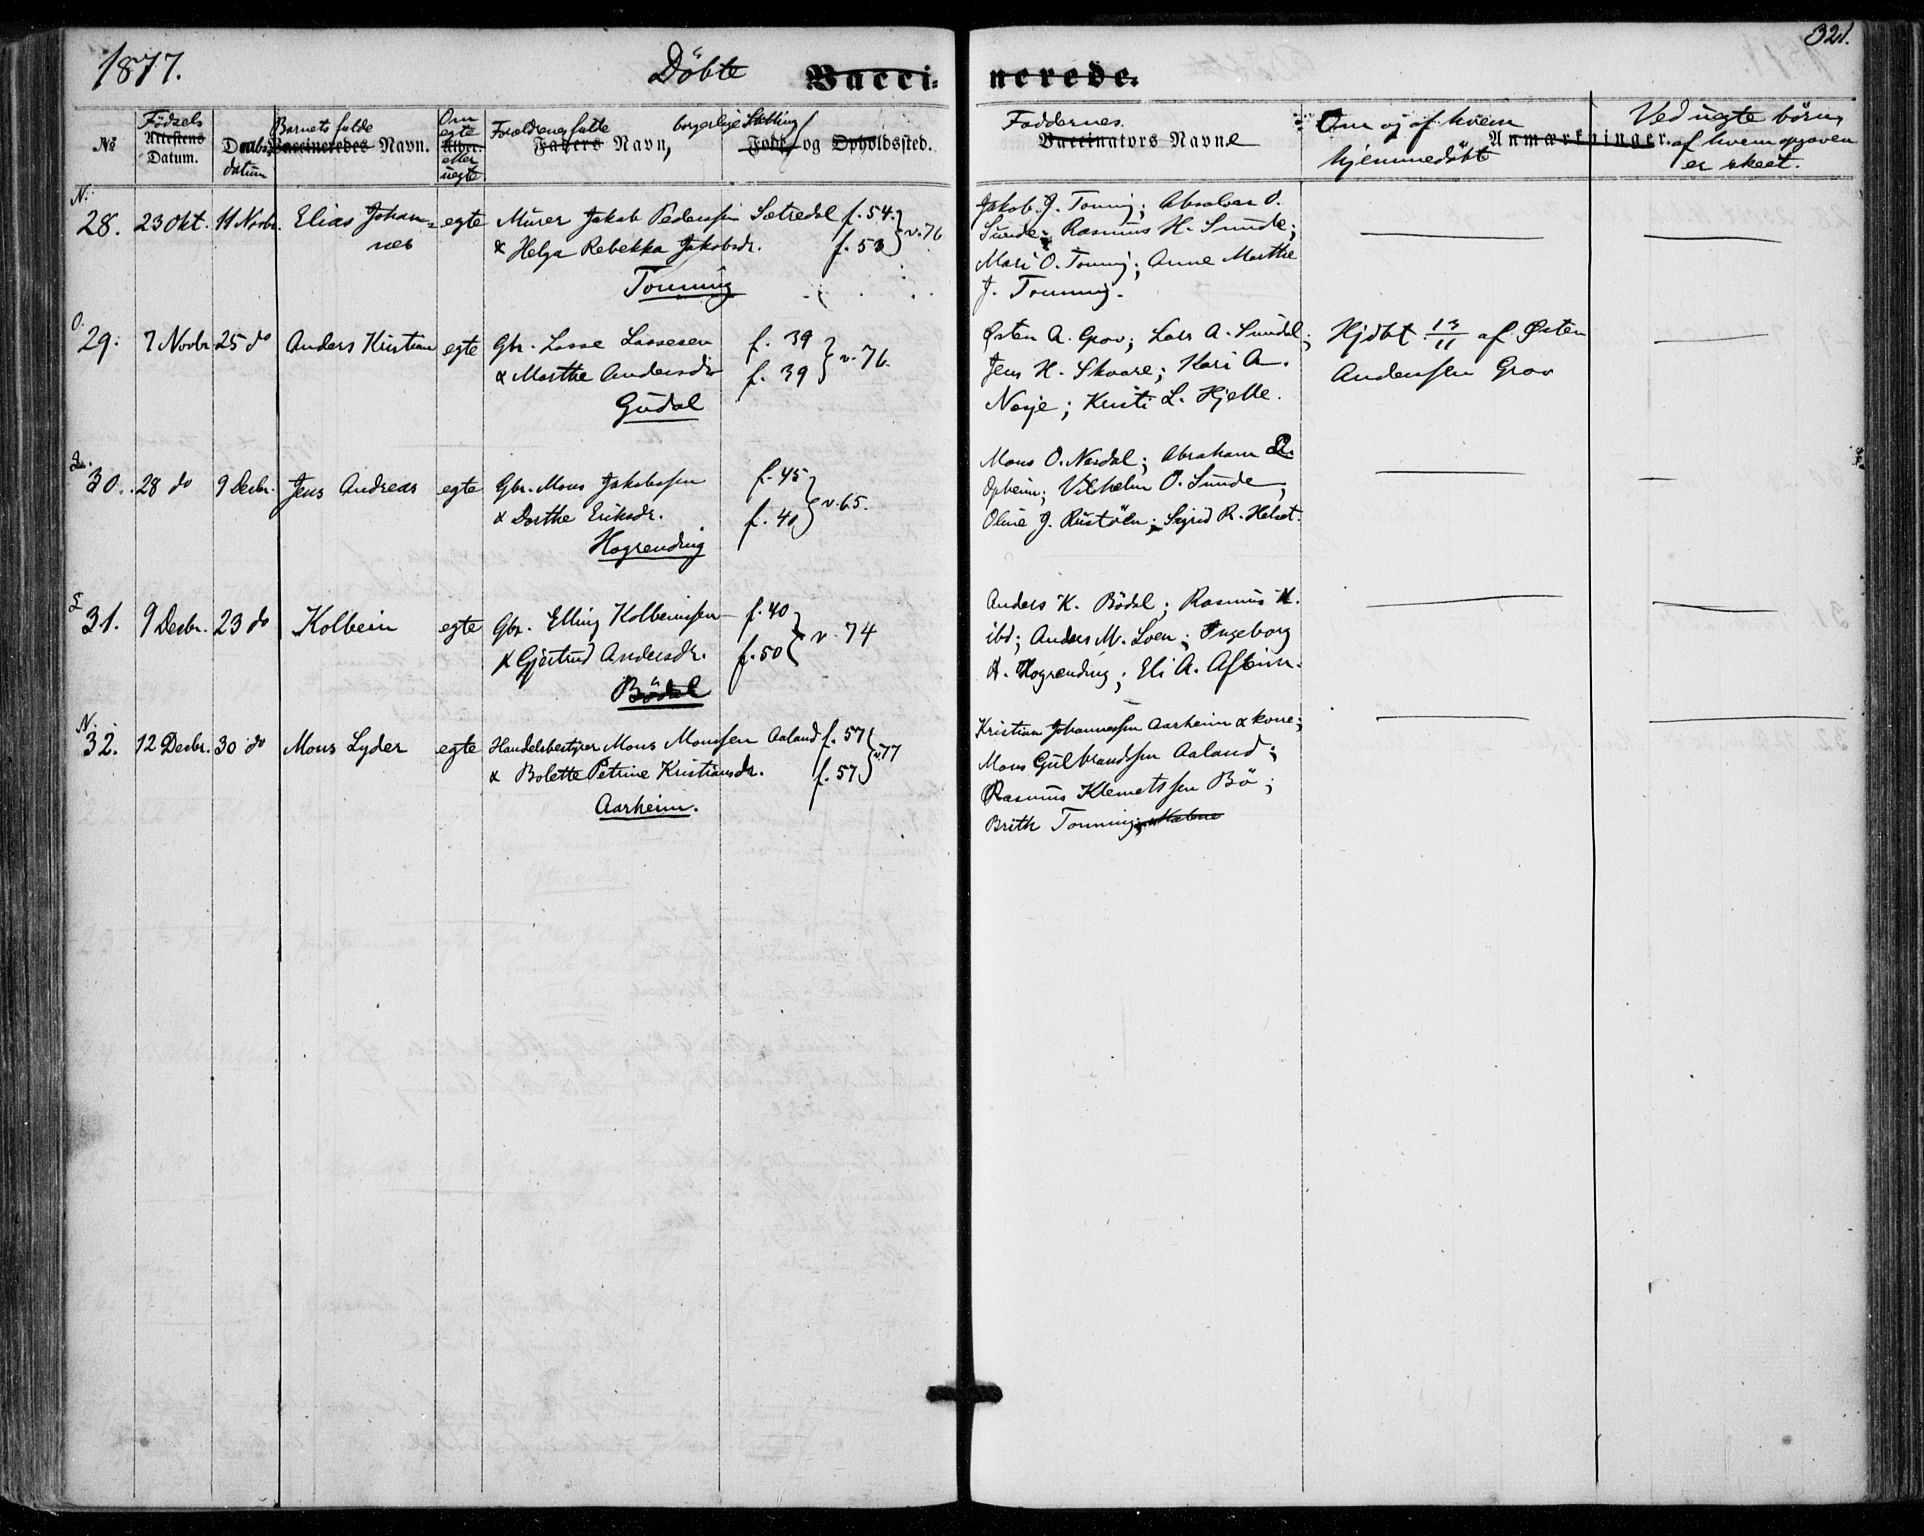 1877. Döbte Vacci-
nerede. 321.
No Födsels Attestens Datum. Daabsdatum Barnets fulde Vaccineredes Navn. Om egte Alder. eller uegte Forældrenes fulde Faders Navn, borgerlige Stilling Folk og Opholdssted.
Faddernes Vaccinators Navne Om og af hvem hjemmedöbt Anmærkninger. Ved uegte börn, af hvem opgaven er skeet.
N.
28. 23 Okt. 11 Novbr. Elias Johan- egte Murer Jakob Pederssen Sætredal f. 54. v. 76
nes & Helga Rebekka Jakobsdr. f. 53
Tonning
Jakob J. Tonning; Absalon O.
Sunde; Rasmus H. Sunde;
Mari O. Tonning; Anne Marthe
J. Tonning.
O.
29. 7 Novbr 25 do Anders Kristian egte Gbr. Lasse Lassesen f. 39 v. 76.
& Marthe Andersdr f. 39
Gudal
Østen A. Grov; Lars A. Sundal;
Jens H. Skaare; Kari A.
Nesje; Kristi L. Hjelle.
Hjdbt. 13/11 af Østen
Anderssen Grov
30. 28 do 9 Decbr. Jens Andreas egte Gbr. Mons Jakobssen f. 45 v. 65.
& Dorthe Eriksdr. f. 40
Hogrending
Mons O. Nesdal; Abraham
Opheim; Vilhelm O. Sunde;
Oline J. Rustöen; Sigrid R. Helset.
L
31. 9 Decbr. 23 do Kolbein egte Gbr. Elling Kolbeinssen f. 40 v. 74
& Gjertrud Andersdr. f. 50
Bödal
Anders K. Bödal; Rasmus K.
ibd; Anders M. Loen; Ingeborg
A. Hogrending; Eli A. Aflein.
N.
32. 12 Decbr. 30 do Mons Lyder egte Handelsbestyrer Mons Monssen Aaland f. 57 v. 77
& Bolette Petrine Kristiansdr. f. 57
Aarheim.
Kristian Johannessen Aarheim & kone;
Mons Gulbrandssen Aaland;
Rasmus Klemetssen Bö;
Brith Tonning;